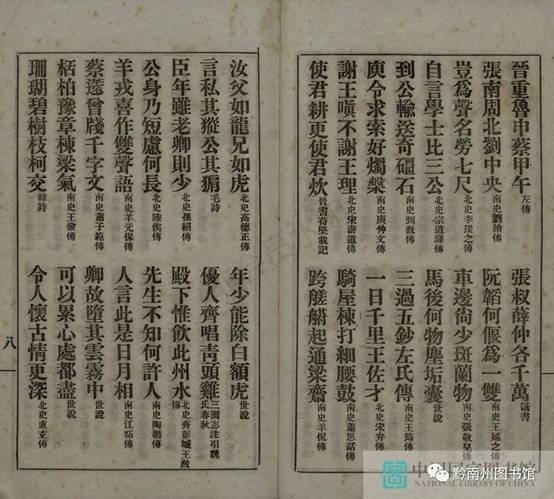 晉重魯申蔡甲午左傳
張叔薛仲各千萬漢書
張南周北劉中央南史劉繪傳
阮韜何偃爲一雙南史王延之傳
豈爲聲名勞七尺北史李琰之傳
車邊尙少斑蘭物南史張敬兒傳
自言學士比三公北史宗道暉傳
馬後何物塵垢囊世說
到公輸送奇礓石南史到漑傳
三過五鈔左氏傳南史王筠傳
庾令求索好燭槃南史庾仲文傳
一日千里王佐才北史宋弁傳
謝王嗔不謝王理北史宋游道傳
騎屋棟打細腰鼓南史蕭思話傳
使君耕更使君炊晉書苻堅載記
跨艖起通梁齋南史羊侃傳
汝父如龍兄如虎北史高德正傳
年少能除白額虎世說
言私其豵公其豜毛詩
優人齊唱靑頭雞三國志注引魏氏春秋
臣年雖老卿則少北史孫紹傳
殿下惟飮此州水北齊彭城王浟傳
公身乃短慮何長北史陸俟傳
先生不知何許人南史陶潛傳
羊戎喜作雙聲語南史羊元保傳
人言此是日月相南史江祏傳
蔡薳曾牋千字文南史蕭子範傳
卿故墮其雲霧中世說
栝柏豫章棟梁氣南史王儉傳
可以累心處都盡世說
珊瑚碧樹枝柯交韓詩
令人懷古情更深北史盧玄傳
八
黔南州图书馆
NATIONAL LIBRARY OF CHINA